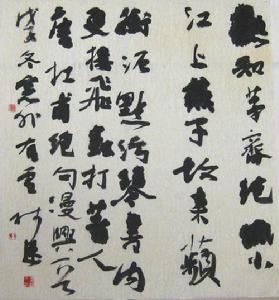 熟知茅齋絕低小
江上燕子故来頻
銜泥點污琴書内
更接飛蟲打著人
唐杜甫絕句漫興一首
冬窗外有雪